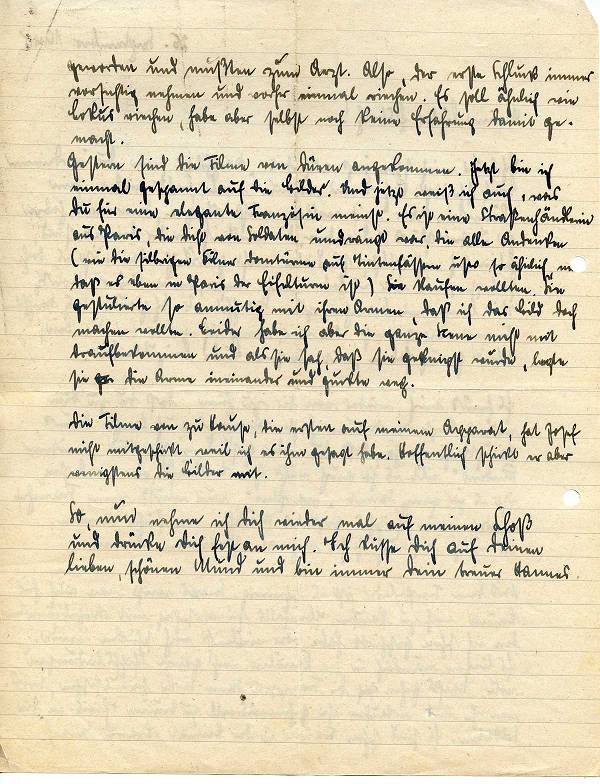 geworden und mußten zum Arzt. Also, der erste Schluck immer
vorsichtig nehmen und vorher einmal riechen. Es soll ähnlich wie
Lokus riechen, habe aber selbst noch keine Erfahrung damit ge-
macht.
Gestern sind die Filme von Düren angekommen. Jetzt bin ich
einmal gespannt auf die Bilder. Und jetzt weiß ich auch, was
Du für eine elegante Französin meinst. Es ist eine Straßenhändlerin
aus Paris, die dicht von Soldaten umdrängt war, die alle Andenken
(wie die silbrigen Kölner Domtürme auf Tintenfässern usw so ähnlich
daß es eben in Paris der Eifelturm ist) kaufen wollten. Sie
gestikulierte so anmutig mit ihren Armen, daß ich das Bild doch
machen wollte. Leider habe ich aber die ganze Szene nicht mit
draufbekommen und als sie sah, daß sie geknipst wurde, legte
sie die Arme ineinander und guckte weg.
Die Filme von zu Hause, die ersten auf meinem Apparat, hat Josef
nicht mitgeschickt weil ich es ihm gesagt habe. Hoffentlich schickt er aber
wenigstens die Bilder mit.
So, nun nehme ich Dich wieder mal auf meinen Schoß
und drücke Dich fest an mich. Ich küsse Dich auf Deinen
lieben, schönen Mund und bin immer Dein treuer Hannes.